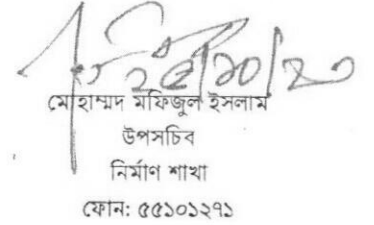 ২৫/১০/২০
মোহাম্মদ মফিজুল ইসলাম
উপসচিব
নির্মাণ শাখা
ফোন: ৫৫১০১২৭১